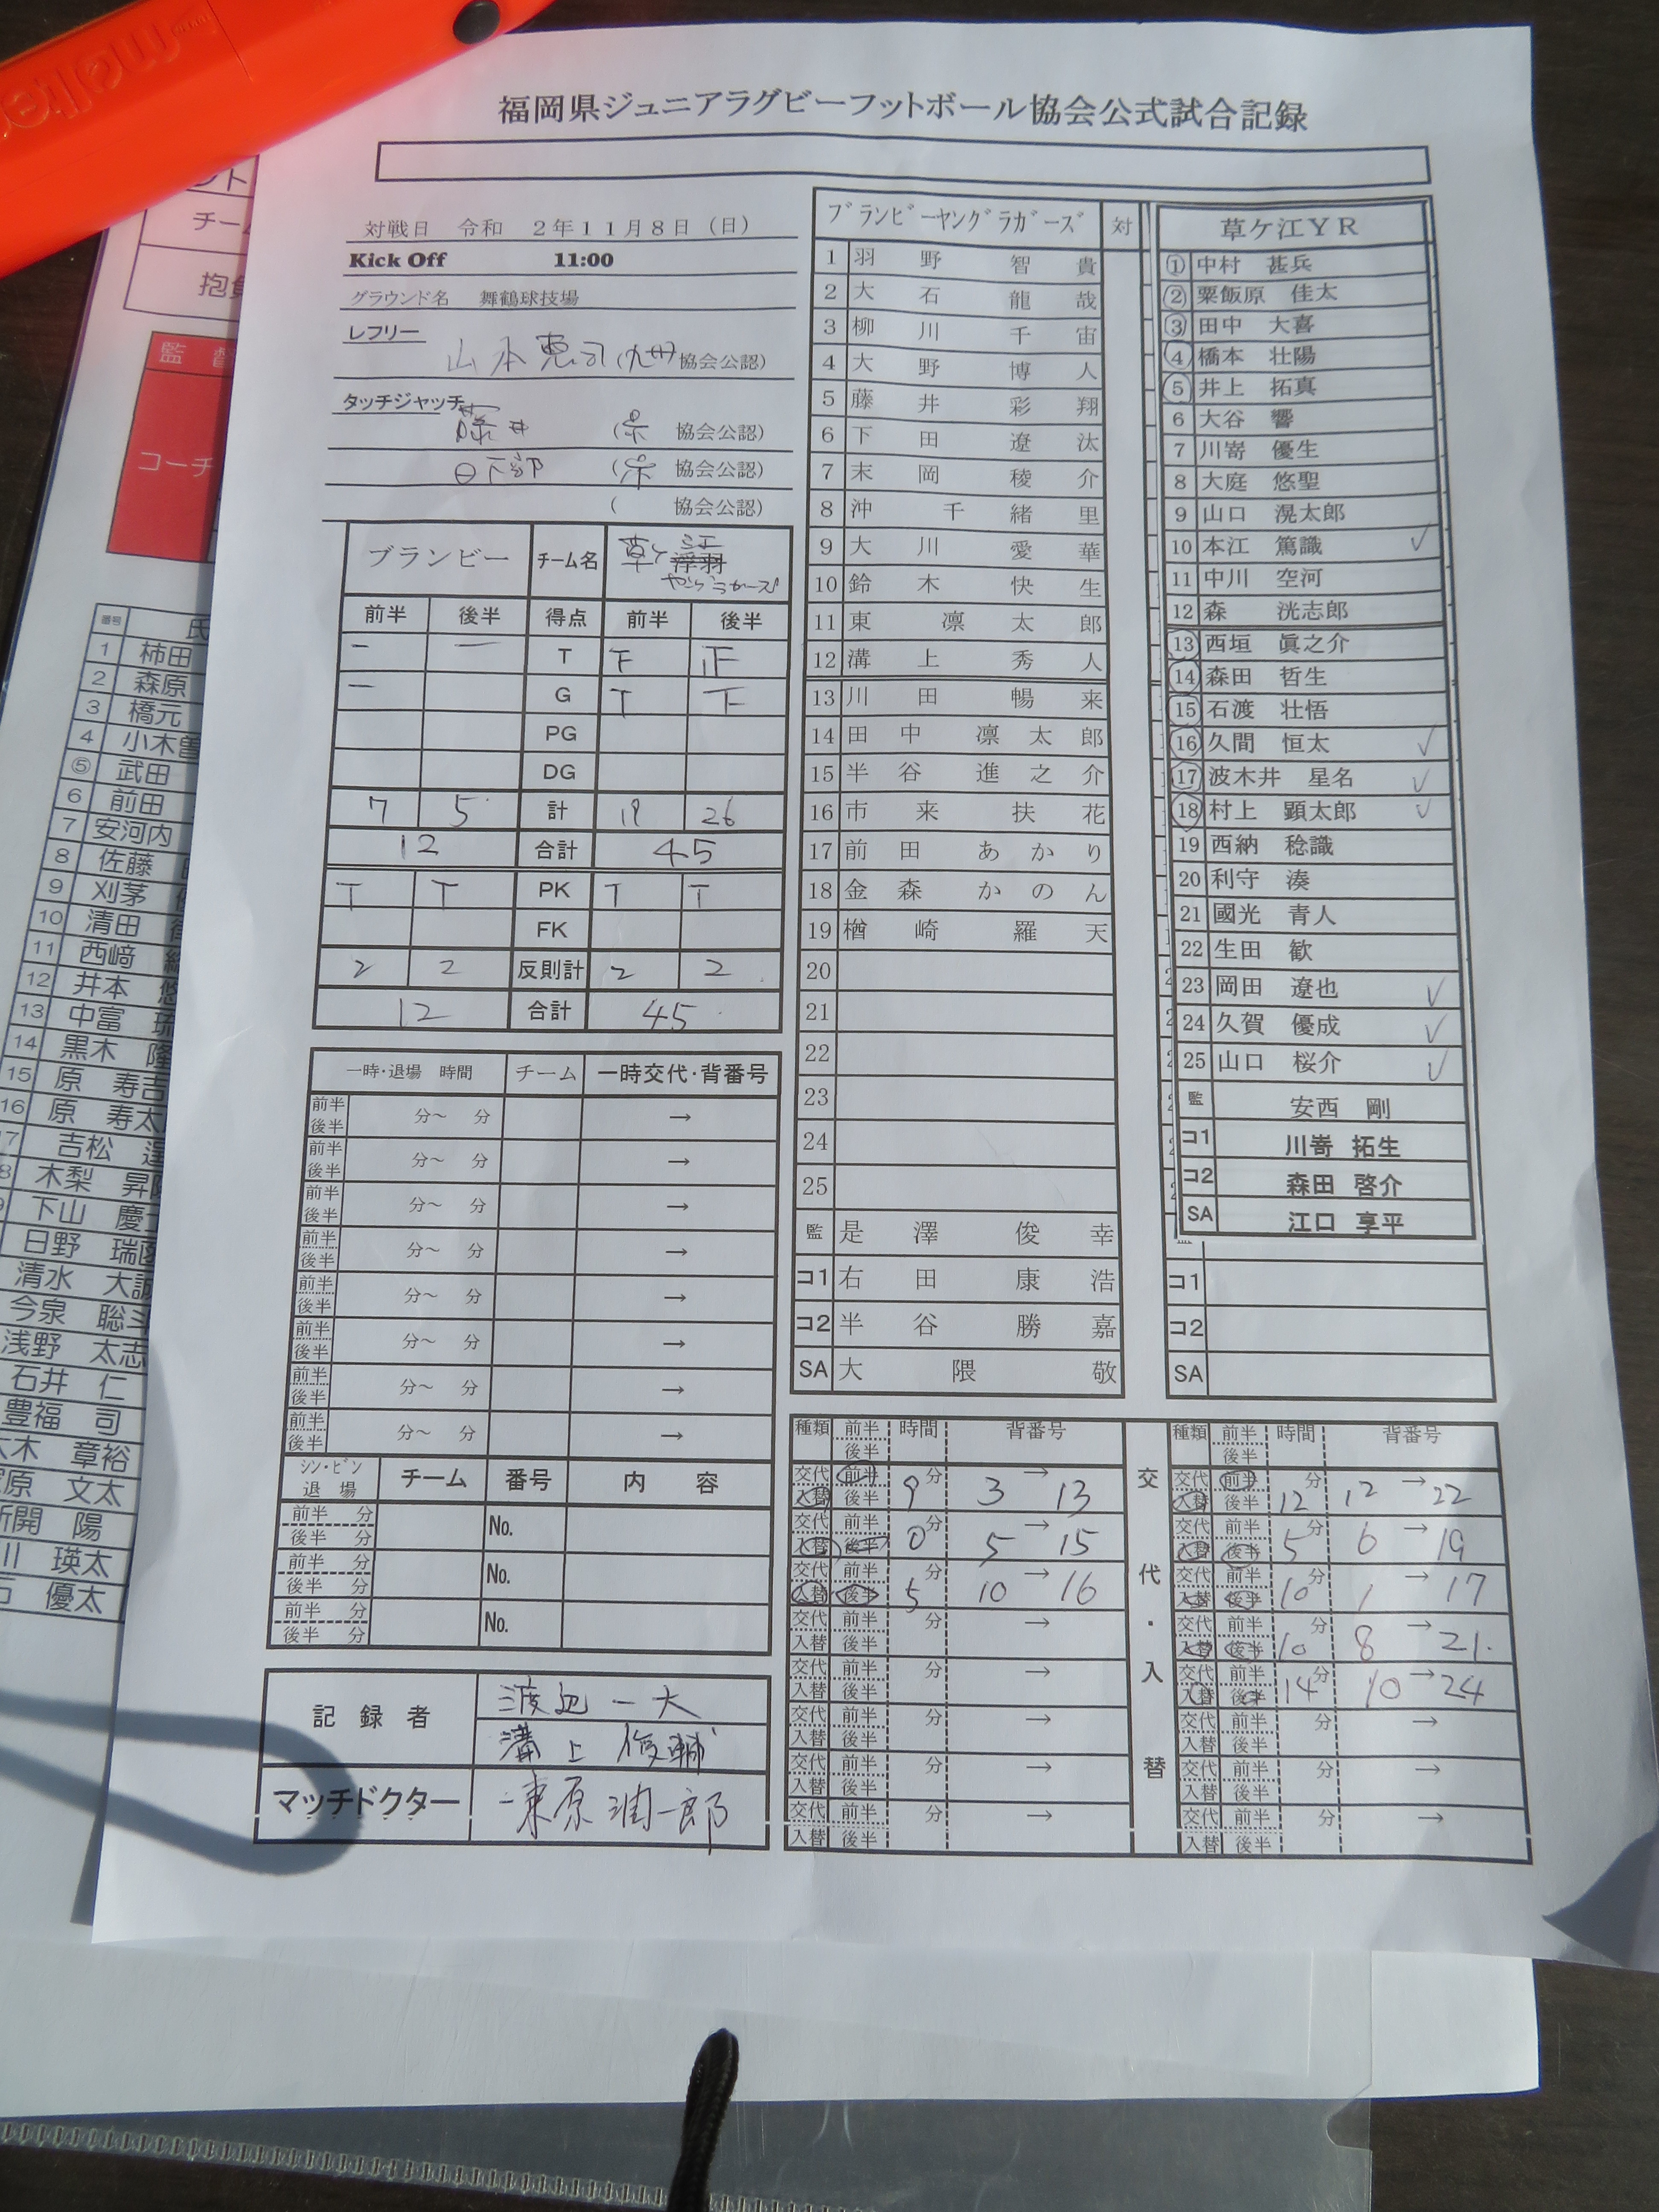 福岡県ジュニアラグビーフットボール協会公式試合記録
対戦日 令和 2年11月8日(日)
Kick Off 11:00
グラウンド名 舞鶴球技場
レフリー
山本恵司(九州協会公認)
タッチジャッチ
藤井 ( 協会公認)
日下部 ( 協会公認)
( 協会公認)
ブランビー チーム名 草ヶ江 浮羽
やングラガーズ
前半 後半 得点 前半 後半
一 一 T 下 正
一 G T 下
PG
DG
7 5 計 19 26
12 合計 45
T T PK T T
FK
2 2 反則計 2 2
12 合計 45
一時・退場 時間 チーム 一時交代・背番号
前半 後半 分〜 分 →
前半 後半 分〜 分 →
前半 後半 分〜 分 →
前半 後半 分〜 分 →
前半 後半 分〜 分 →
前半 後半 分〜 分 →
前半 後半 分〜 分 →
前半 後半 分〜 分 →
シン・ビン 退場 チーム 番号 内容
前半 分 後半 分 No.
前半 分 後半 分 No.
前半 分 後半 分 No.
記録者 渡辺一大
溝上俊輔
マッチドクター 東原潤一郎
ブランビーヤングラガーズ 対
1 羽野智貴
2 大石龍哉
3 柳川千宙
4 大野博人
5 藤井彩翔
6 下田遼汰
7 末岡稜介
8 沖千緒里
9 大川愛華
10 鈴木快生
11 東凛太郎
12 溝上秀人
13 川田暢来
14 田中凛太郎
15 半谷進之介
16 市来扶花
17 前田あかり
18 金森かのん
19 楢崎羅天
20
21
22
23
24
25
監 是澤俊幸
コ1 右田康浩
コ2 半谷勝嘉
SA 大隈敬
草ケ江YR
① 中村 甚兵
② 粟飯原 佳太
③ 田中 大喜
④ 橋本 壮陽
⑤ 井上 拓真
6 大谷 響
7 川嵜 優生
8 大庭 悠聖
9 山口 滉太郎
10 本江 篤識 ✓
11 中川 空河
12 森 洸志郎
⑬ 西垣 眞之介
⑭ 森田 哲生
⑮ 石渡 壮悟
⑯ 久間 恒太 ✓
⑰ 波木井 星名 ✓
⑱ 村上 顕太郎 ✓
19 西納 稔識
20 利守 湊
21 國光 青人
22 生田 歓
23 岡田 遼也 ✓
24 久賀 優成 ✓
25 山口 桜介 ✓
監 安西 剛
コ1 川嵜 拓生
コ2 森田 啓介
SA 江口 享平
コ1
コ2
SA
種類 前半 後半 時間 背番号
交代 入替 前半 後半 9分 3 → 13
交代 入替 前半 後半 0分 5 → 15
交代 入替 前半 後半 5分 10 → 16
交代 入替 前半 後半 分 →
交代 入替 前半 後半 分 →
交代 入替 前半 後半 分 →
交代 入替 前半 後半 分 →
交代 入替 前半 後半 分 →
交代・入替
種類 前半 後半 時間 背番号
交代 入替 前半 後半 12分 12 → 22
交代 入替 前半 後半 5分 6 → 19
交代 入替 前半 後半 10分 1 → 17
交代 入替 前半 後半 10分 8 → 21
交代 入替 前半 後半 14分 10 → 24
交代 入替 前半 後半 分 →
交代 入替 前半 後半 分 →
交代 入替 前半 後半 分 →
molten
チーム
監督
コーチ
番号
1 柿田
2 森原
3 橋元
4 小木曽
⑤ 武田
6 前田
7 安河内
8 佐藤
9 刈茅
10 清田
11 西﨑
12 井本
13 中富
14 黒木
15 原 寿吉
16 原 寿太
吉松
木梨 昇
下山 慶
日野 瑞
清水 大誠
今泉 聡斗
浅野 太志
石井 仁
豊福 司
木 章裕
原 文太
新開 陽
瑛太
優太